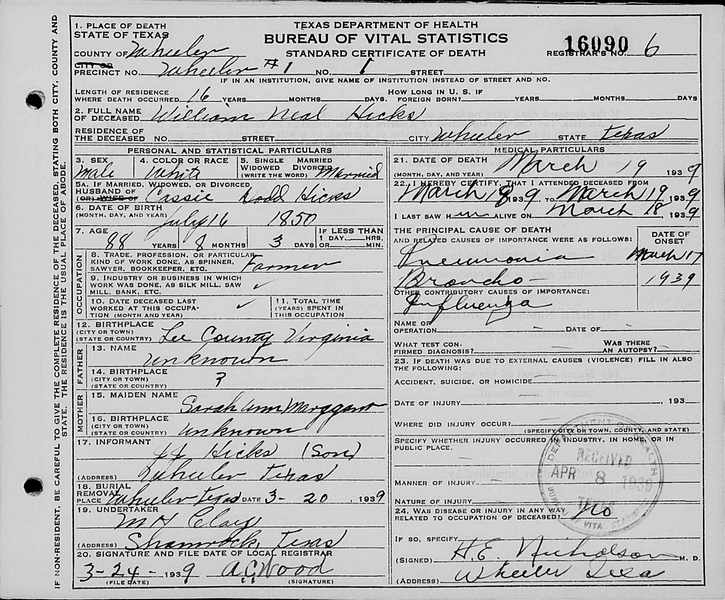 TEXAS DEPARTMENT OF HEALTH
BUREAU OF VITAL STATISTICS
STANDARD CERTIFICATE OF DEATH
16090
REGISTRAR'S NO. 6
IF NON-RESIDENT, BE CAREFUL TO GIVE THE COMPLETE RESIDENCE OF THE DECEASED, STATING BOTH CITY, COUNTY AND
STATE. THE RESIDENCE IS THE USUAL PLACE OF ABODE.
1. PLACE OF DEATH
STATE OF TEXAS
COUNTY OF Wheeler
CITY OR
PRECINCT NO. Wheeler #1 NO. 1 STREET
IF IN AN INSTITUTION, GIVE NAME OF INSTITUTION INSTEAD OF STREET AND NO.
LENGTH OF RESIDENCE
WHERE DEATH OCCURRED 16 YEARS MONTHS DAYS
HOW LONG IN U. S. IF
FOREIGN BORN? YEARS MONTHS DAYS
2. FULL NAME
OF DECEASED William Neal Hicks
RESIDENCE OF
THE DECEASED NO. STREET CITY Wheeler STATE Texas
PERSONAL AND STATISTICAL PARTICULARS
3. SEX male
4. COLOR OR RACE White
5. SINGLE MARRIED
WIDOWED DIVORCED
(WRITE THE WORD) Married
5A. IF MARRIED, WIDOWED, OR DIVORCED
HUSBAND OF
(OR) WIFE OF Dodd Hicks
6. DATE OF BIRTH
(MONTH, DAY, AND YEAR) July 16 1850
7. AGE
88 YEARS 8 MONTHS 3 DAYS
IF LESS THAN
1 DAY HRS.
OR MIN.
OCCUPATION
8. TRADE, PROFESSION, OR PARTICULAR
KIND OF WORK DONE, AS SPINNER,
SAWYER, BOOKKEEPER, ETC. Farmer
9. INDUSTRY OR BUSINESS IN WHICH
WORK WAS DONE, AS SILK MILL, SAW
MILL, BANK, ETC.
10. DATE DECEASED LAST
WORKED AT THIS OCCUPA-
TION (MONTH AND YEAR)
11. TOTAL TIME
(YEARS) SPENT IN
THIS OCCUPATION
12. BIRTHPLACE
(CITY OR TOWN)
(STATE OR COUNTRY) Lee County Virginia
FATHER
13. NAME
unknown
14. BIRTHPLACE
(CITY OR TOWN)
(STATE OR COUNTRY) ?
MOTHER
15. MAIDEN NAME
Sarah Ann
16. BIRTHPLACE
(CITY OR TOWN)
(STATE OR COUNTRY) unknown
17. INFORMANT Hicks (Son)
(ADDRESS) Wheeler Texas
18. BURIAL
REMOVAL
PLACE Wheeler Texas DATE 3-20, 1939
19. UNDERTAKER
Clay
(ADDRESS) Shamrock, Texas
20. SIGNATURE AND FILE DATE OF LOCAL REGISTRAR
3-24- 1939 A.G. Wood
(FILE DATE) (SIGNATURE)
MEDICAL PARTICULARS
21. DATE OF DEATH
(MONTH, DAY, AND YEAR) March 19 1939
22. I HEREBY CERTIFY, THAT I ATTENDED DECEASED FROM
March 18 1939 TO March 19 1939
I LAST SAW H im ALIVE ON March 18 1939
THE PRINCIPAL CAUSE OF DEATH
AND RELATED CAUSES OF IMPORTANCE WERE AS FOLLOWS:
DATE OF
ONSET
Pneumonia March 17
Broncho- 1939
OTHER CONTRIBUTORY CAUSES OF IMPORTANCE:
Influenza
NAME OF
OPERATION DATE OF
WHAT TEST CON-
FIRMED DIAGNOSIS?
WAS THERE
AN AUTOPSY?
23. IF DEATH WAS DUE TO EXTERNAL CAUSES (VIOLENCE) FILL IN ALSO
THE FOLLOWING:
ACCIDENT, SUICIDE, OR HOMICIDE
DATE OF INJURY 193
WHERE DID INJURY OCCUR?
(SPECIFY CITY OR TOWN, COUNTY, AND STATE)
SPECIFY WHETHER INJURY OCCURRED IN INDUSTRY, IN HOME, OR IN
PUBLIC PLACE.
MANNER OF INJURY
NATURE OF INJURY
RECEIVED
APR 8 1939
TEXAS
24. WAS DISEASE OR INJURY IN ANY WAY
RELATED TO OCCUPATION OF DECEASED? No
IF SO, SPECIFY
(SIGNED) H.E. Nicholson M. D.
(ADDRESS) Wheeler Texa